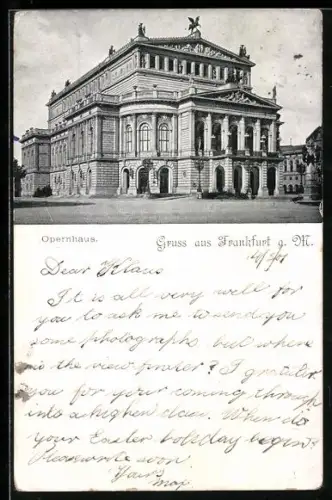 Opernhaus.
Gruss aus Frankfurt a. M.
Dear Klaus
It is all very well for
you to ask me to send you
some photographs but where
is the view finder? I gratuler
you for your coming through
into a higher class. When do
your Easter holiday begin?
Please write soon.
Yours
Max